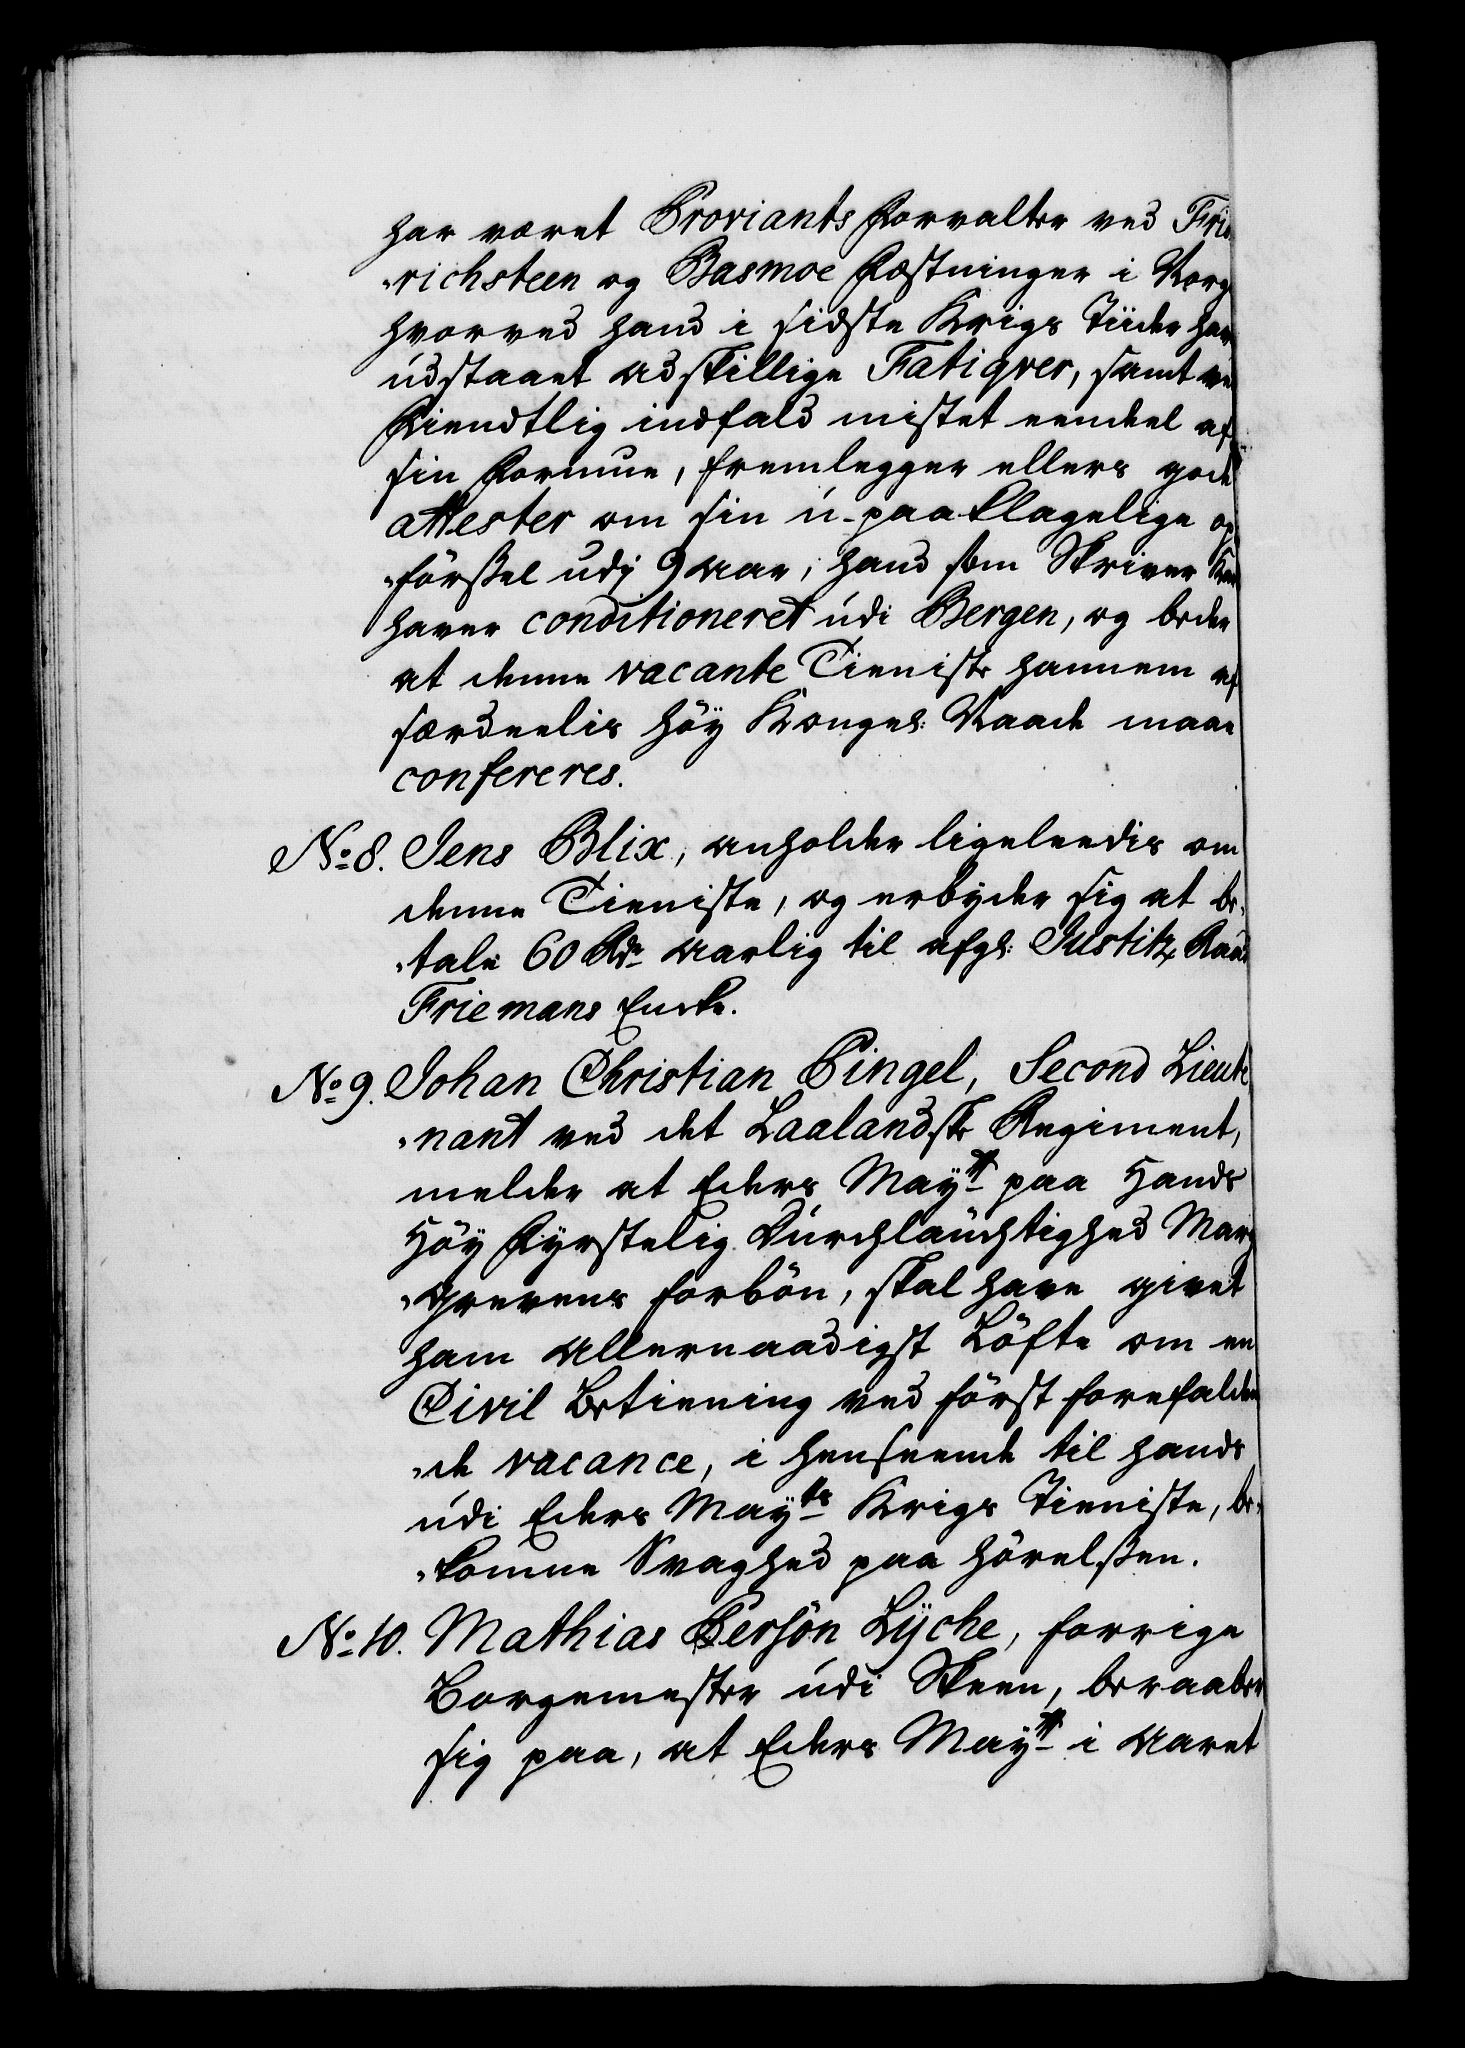 har været Proviants Forvalter ved Frie¬
„richsteen og Basmoe Fæstninger i Norge
hvorved hand i sidste Krigs Tiider har
udstaaet adskillige Fatiqver, samt ved
Fiendtlig indfald mistet eendeel af
sin Formue, fremlegger ellers gode
attester om sin u-paaklagelige op¬
„førßel udj 9 Aar, hand som Skriver Karl
haver conditioneret udi Bergen, og beder
at denne vacante Tieniste hannem af
særdeelis høy Kongel: Naade maae
confereres.
No 8. Jens Blix, anholder ligeleedis om
denne Tieniste, og erbyder sig at be¬
„tale 60 Rdr aarlig til afgl: Justitz Raad
Friemans Encke.
No 9. Johan Christian Pingel, Second Lieute
„nant ved det Laalandske Regiment,
melder at Eders Mayt paa Hands
Høy Fyrstelig Durchlauchtighed Marg
„grevens forbøn, skal have givet
ham Allernaadigst Løfte om en
Civil Betiening ved først forefalden
„de vacance, i henseende til hands
udi Eders Mayts Krigs Tieniste, be¬
„komne Svaghed paa hørelßen.
No 10. Mathias Persøn Lÿche, forrige
Borgemester udi Skeen, beraaber
sig paa, at Eders Mayt i Aaret